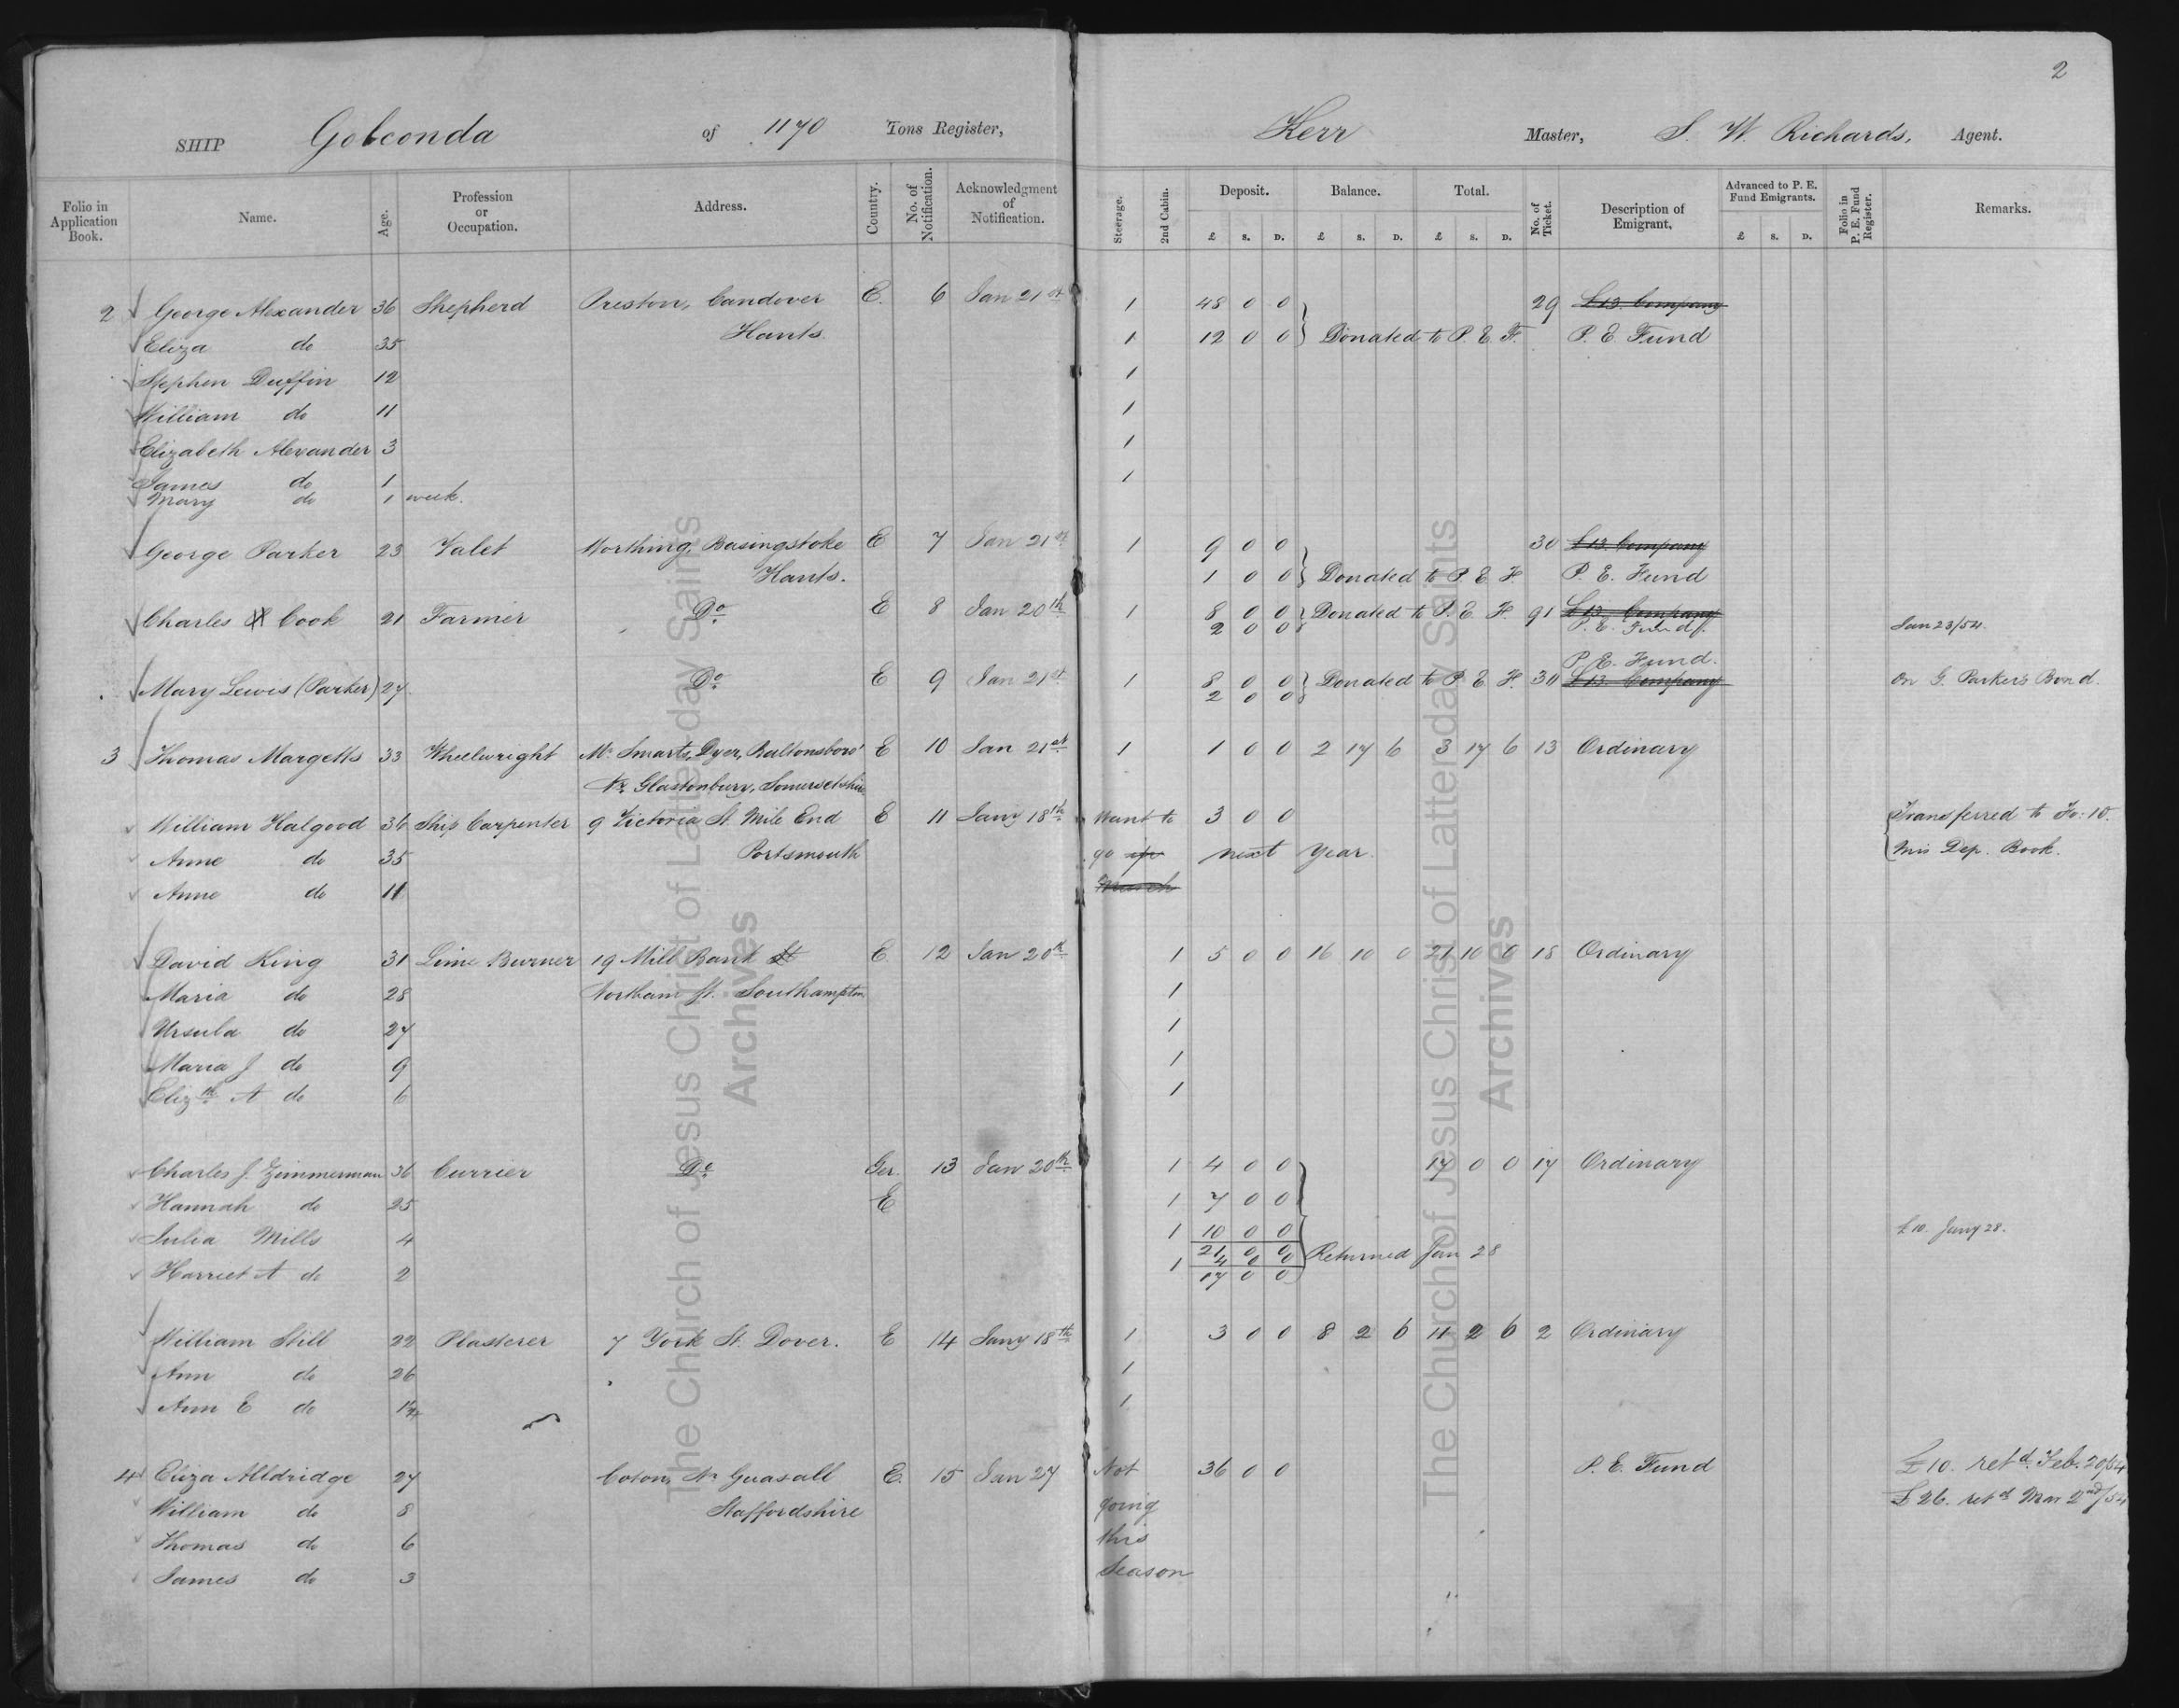 2
SHIP Golconda of 1170 Tons Register, Kerr Master, S. W. Richards, Agent.
Folio in Application Book. Name. Age. Profession or Occupation. Address. Country. No. of Notification. Acknowledgment of Notification. Steerage. 2nd Cabin. Deposit. Balance. Total. No. of Ticket. Description of Emigrant, Advanced to P. E. Fund Emigrants. Folio in P. E. Fund Register. Remarks.
£ S. D. £ S. D. £ S. D. £ S. D.
2 George Alexander 36 Shepherd Preston, Candover E. 6 Jan 21st 1 48 0 0 29 £13 Company
Eliza do 35 Hants. 1 12 0 0 Donated to P. E. F. P. E. Fund
Stephen Duffin 12 1
William do 11 1
Elizabeth Alexander 3 1
James do 1 1
Mary do 1 week.
George Parker 23 Valet Worthing, Basingstoke E 7 Jan 21st 1 9 0 0 30 £13 Company
Hants. 1 0 0 Donated to P. E. F. P. E. Fund
Charles H Cook 21 Farmer Do E 8 Jan 20th 1 8 0 0 Donated to P. E. F. 91 £13 Company
2 0 0 P. E. Fund. Jan 23/54.
P. E. Fund.
Mary Lewis (Parker) 27 Do E 9 Jan 21st 1 8 0 0 Donated to P. E. F. 30 £13 Company On G. Parker's Bond.
2 0 0
3 Thomas Margetts 33 Wheelwright Mr Smarts, Dyer, Baltonsboro' E 10 Jan 21st 1 1 0 0 2 17 6 3 17 6 13 Ordinary
Nr Glastonbury, Somersetshire
William Halgood 36 Ship Carpenter 9 Victoria St. Mile End E 11 Jany 18th Want to 3 0 0 Transferred to Fo: 10.
Anne do 35 Portsmouth go next year. Mis Dep. Book.
Anne do 11 March
David King 31 Lime Burner 19 Mill Bank St E. 12 Jan 20th 1 5 0 0 16 10 0 21 10 0 18 Ordinary
Maria do 28 Northam St. Southampton 1
Ursula do 27 1
Maria J do 9 1
Elizth A do 6 1
Charles J. Zimmerman 36 Currier Do Ger. 13 Jan 20th 1 4 0 0 17 0 0 17 Ordinary
Hannah do 25 E 1 7 0 0
Julia Mills 4 1 10 0 0 £10. Jany 28.
21 0 0 Returned Jan 28
Harriet A do 2 1 4 0 0
17 0 0
William Still 22 Plasterer 7 York St. Dover. E 14 Jany 18th 1 3 0 0 8 2 6 11 2 6 2 Ordinary
Ann do 26 1
Ann E do 1
4 Eliza Alldridge 27 Coton, Nr Guasall E. 15 Jan 27 Not 36 0 0 P. E. Fund £10. retd. Feb. 20/54
William do 8 Staffordshire going £26. retd Mar 2nd/54
Thomas do 6 this
James do 3 Season
The Church of Jesus Christ of Latter-day Saints
Archives
The Church of Jesus Christ of Latter-day Saints
Archives